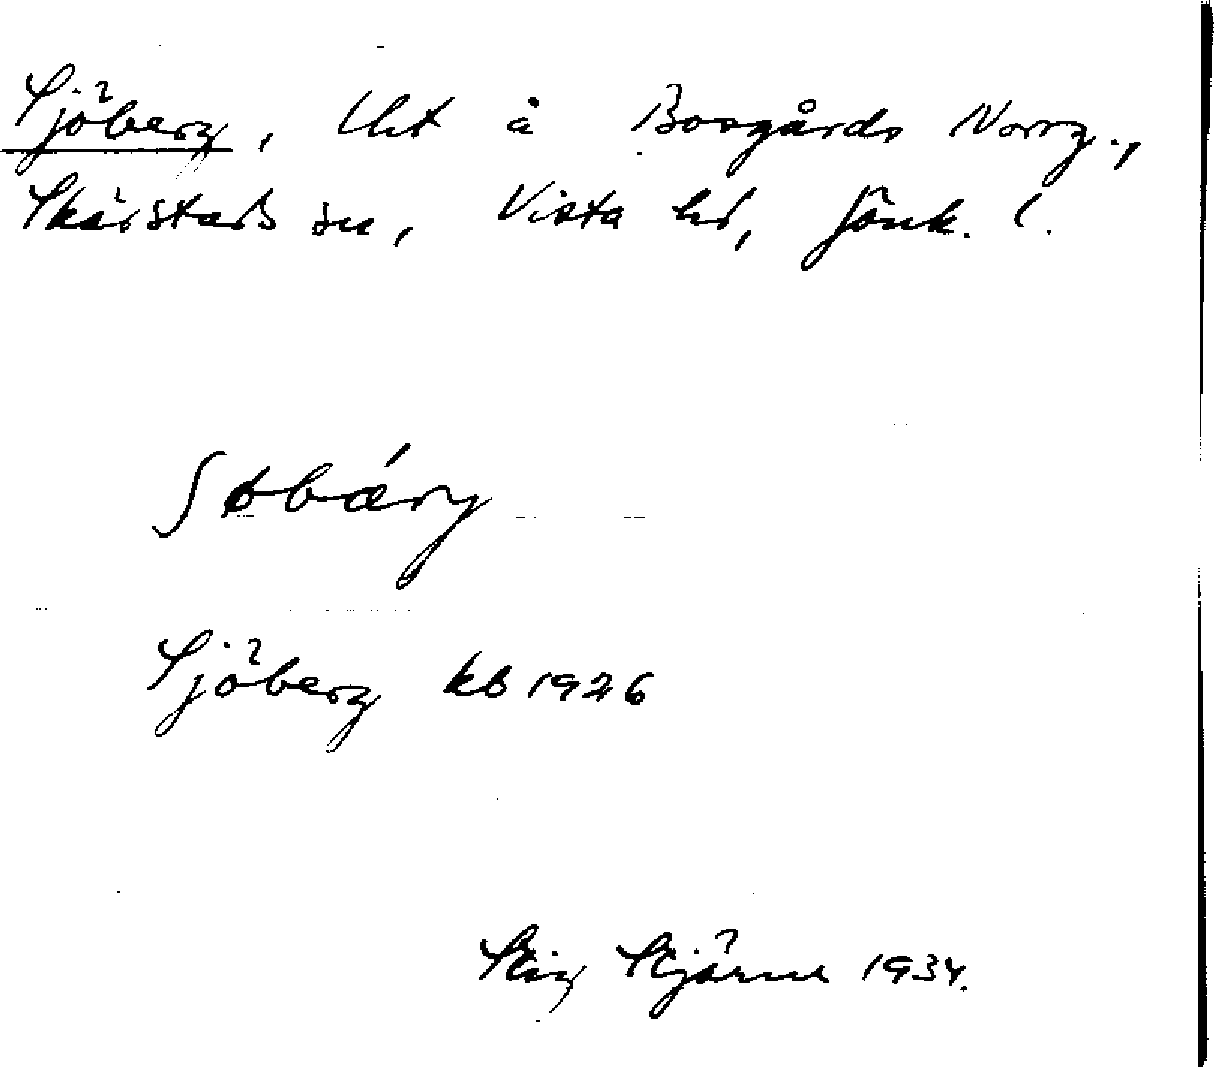 Sjöberg, lht å Bosgårds Norrg.,
Skärstads sn, Vista hd, Jönk. l.
ʃøbæ´ry
Sjöberg kb 1926
Stig Stjärne 1934.